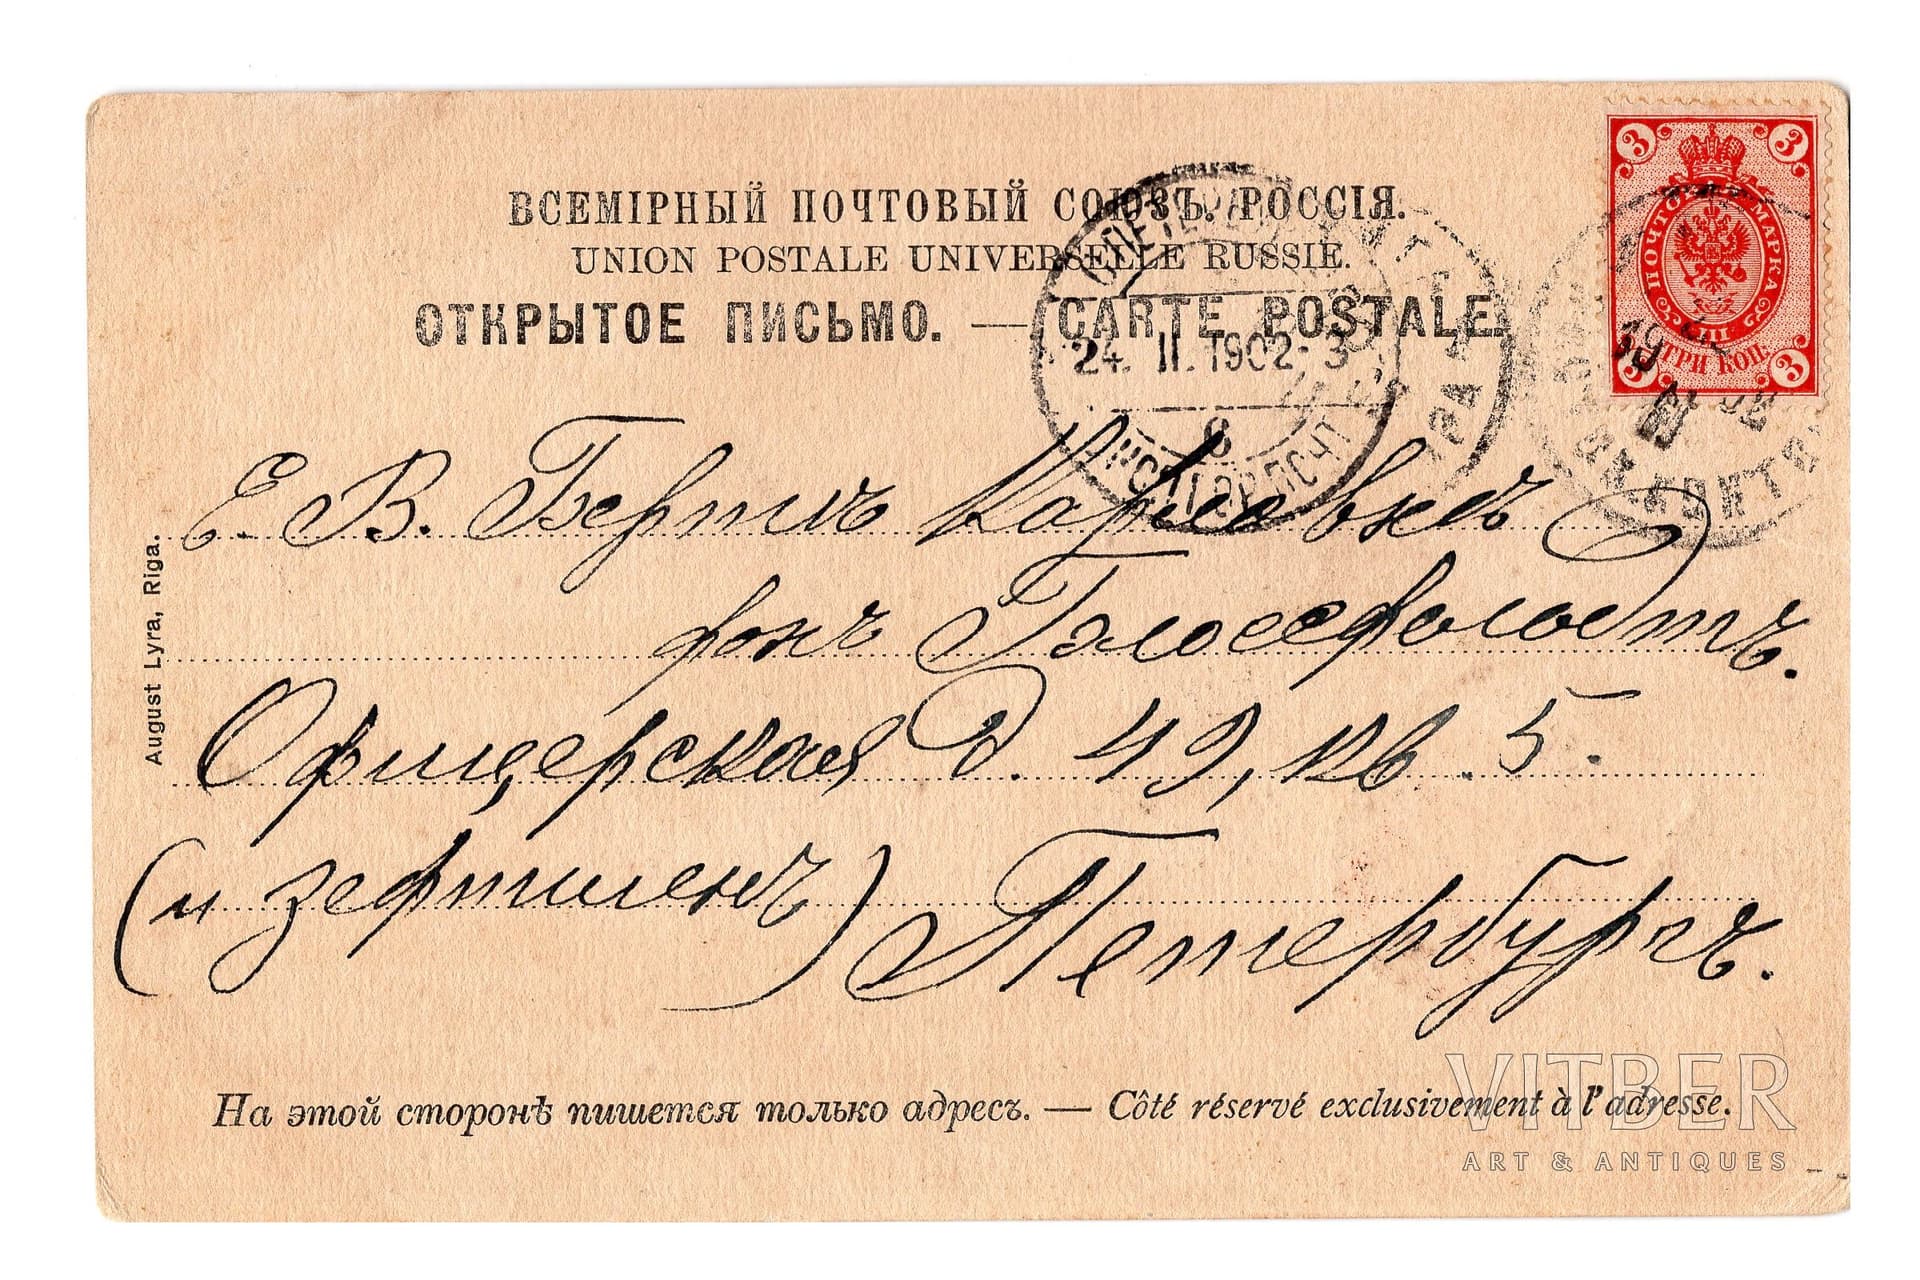 ВСЕМІРНЫЙ ПОЧТОВЫЙ СОЮЗЪ. РОССІЯ.
UNION POSTALE UNIVERSELLE RUSSIE.
ОТКРЫТОЕ ПИСЬМО. — CARTE POSTALE.
3 3
ПОЧТОВАЯ МАРКА
ТРИ КОП.
3 3
24. II. 1902
6
Е. В. Берть Карловнѣ
фонъ
Офицерская д. 49, кв. 5.
(и
Петербургъ.
August Lyra, Riga.
На этой сторонѣ пишется только адресъ. — Côté réservé exclusivement à l'adresse.
VITBER
ART & ANTIQUES